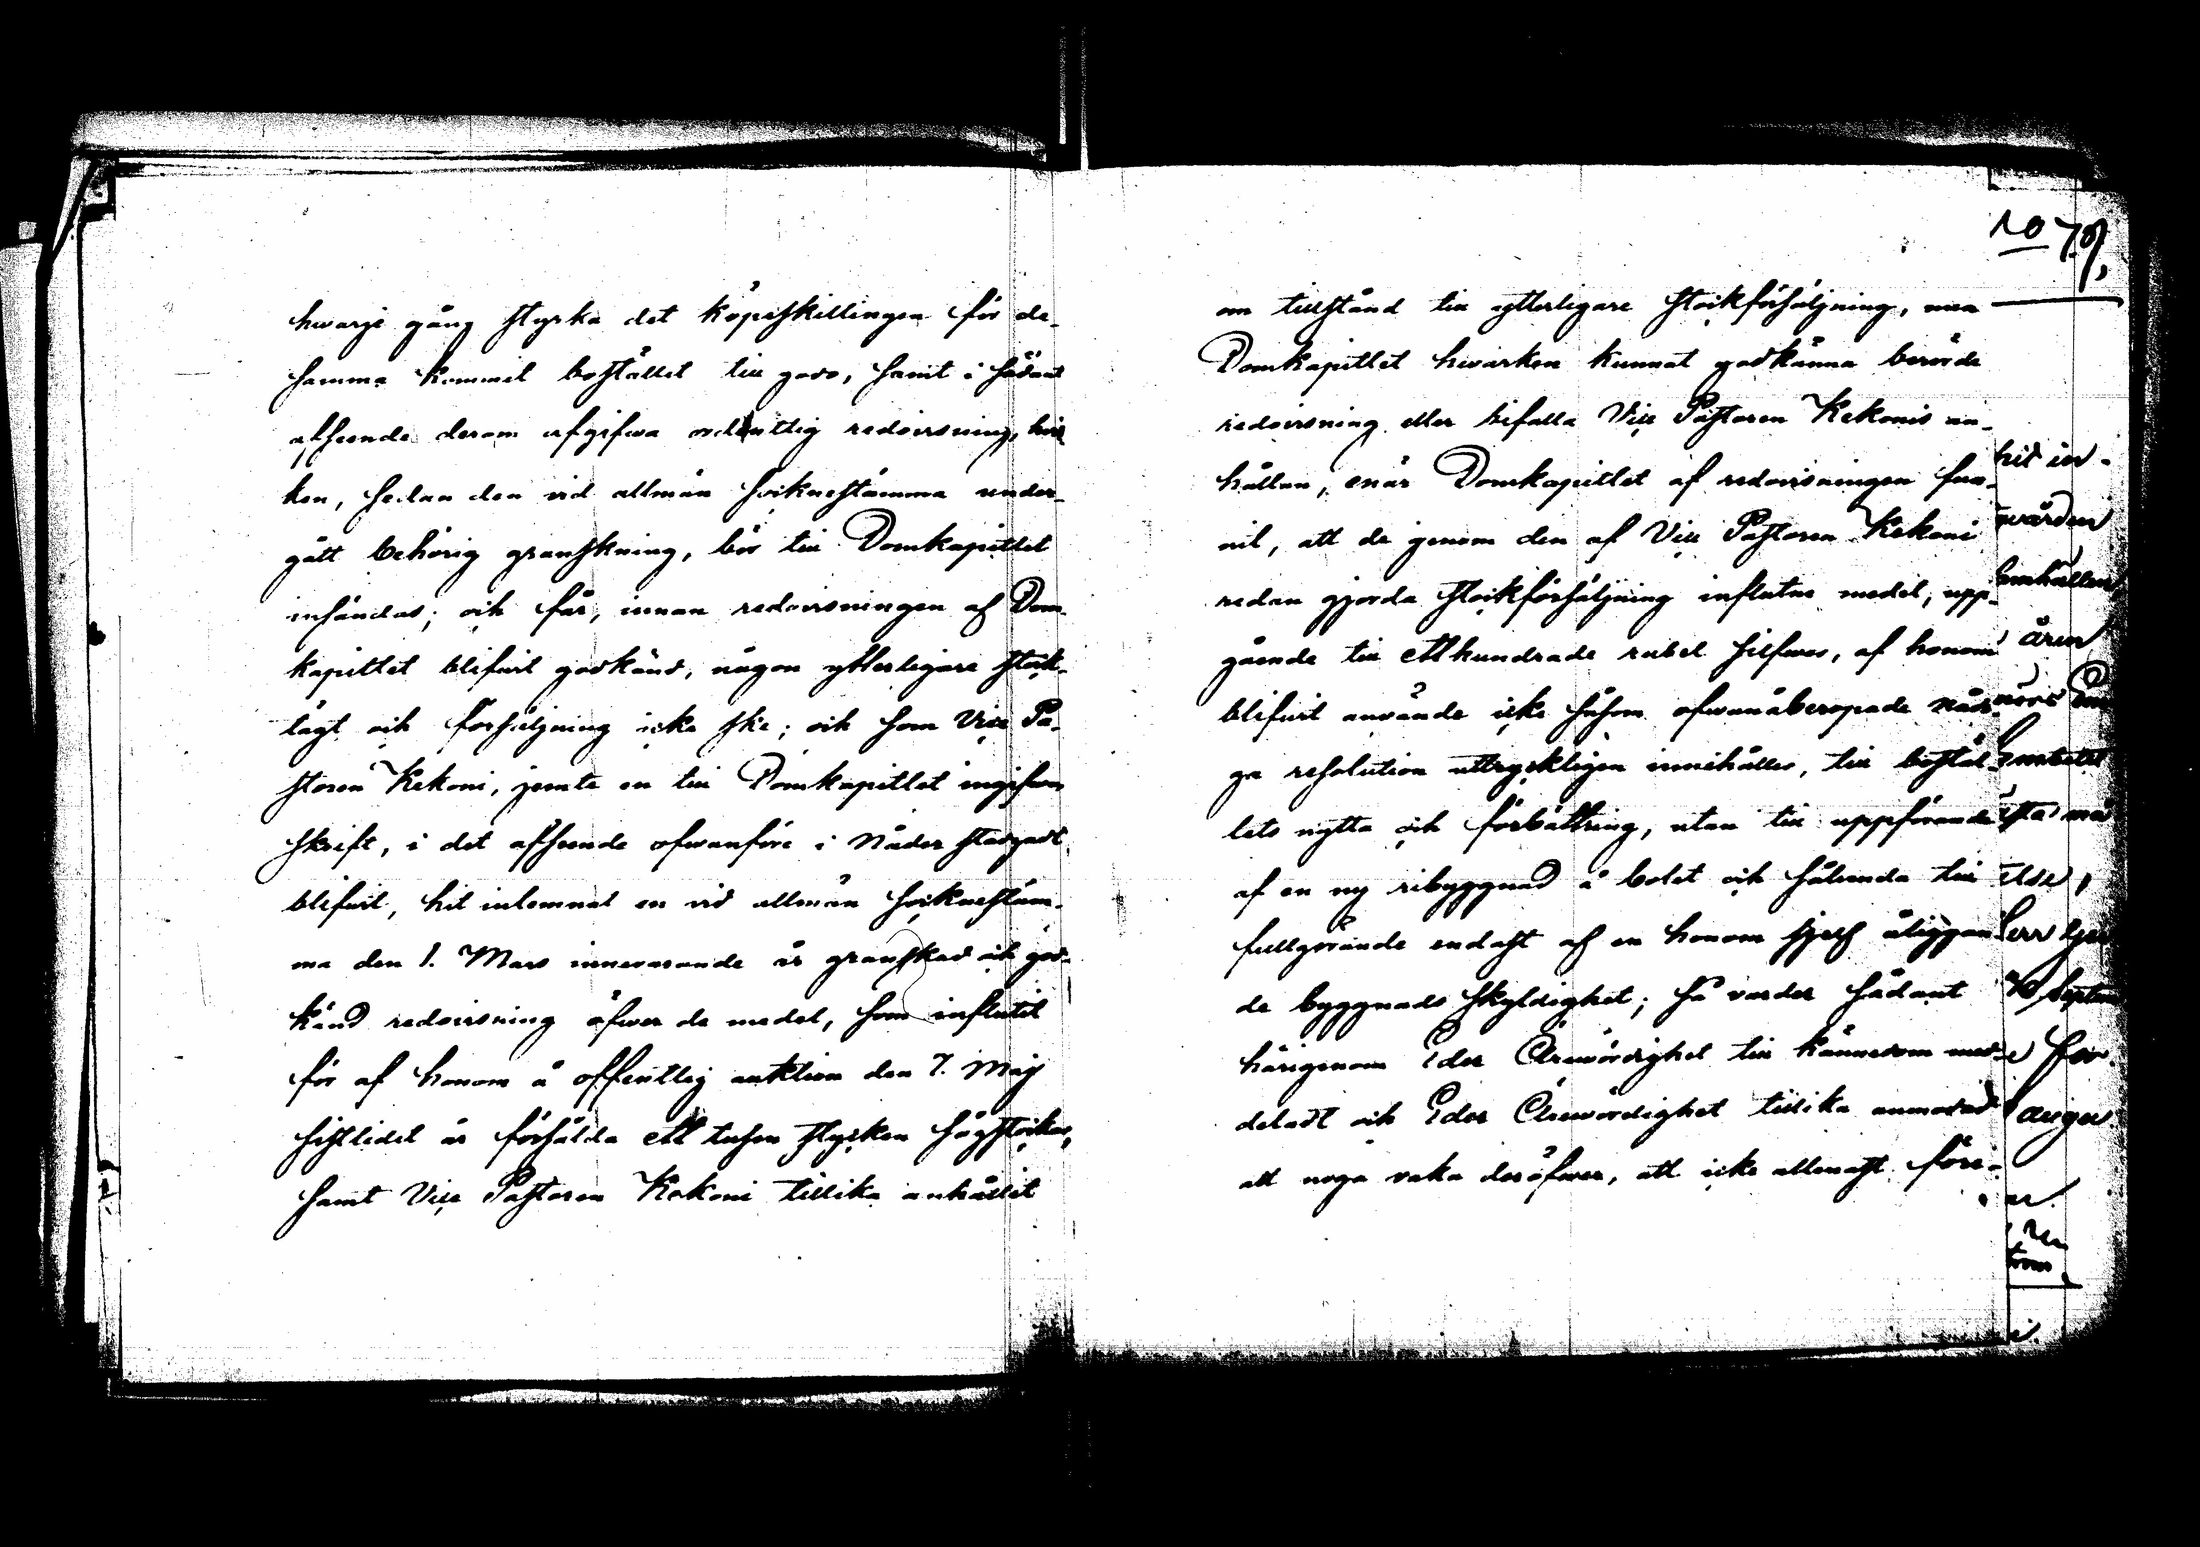 hwarje gång styrka det köpeskillingen för de-
samma kommit bostället till godo, samt i sådant
afseende derom afgifwa ordentlig redovisning, hwil
ken, sedan den vid allmän socknestämma under-
gått behörig granskning, bör till Domkapitlet
insändas; och får, innan redovisningen af Dom-
kapitlet blifvit godkänd, någon ytterligare stock-
tägt och försäljning icke ske; och som Vice Pa-
storen Kekoni, jemte en till Domkapitlet ingifwen
skrift, i det afseende ofwanföre i Nåder stadgadt
blifvit, hit inlemnat en vid allmän sockenestäm-
ma den 1. Mars innevarande år granskad och god-
känd redovisning öfwer de medel, som influtit
för af honom å offentlig auktion den 7. Maj
sistlidet år försålda ett tusen stycken sågstockar,
samt Vice Pastoren Kekoni tillika anhållit
No 79.
om tillstånd till ytterligare stockförsäljning, men
Domkapitlet hwarken kunnat godkänna berörde
redovisning eller bifalla Vice Pastoren Kekonis an-
hållan, enär Domkapitlet af redovisningen fun-
nit, att de genom den af Vice Pastoren Kekoni
redan gjorda stockförsäljning influtne medel, upp-
gående till etthundrade rubel silfwer, af honom
blifvit använde icke såsom ofwanåberopade nådi-
ga resolution uttryckligen innehåller, till bostäl-
lets nytta och förbättring, utan till uppförande
af en ny ribyggnad å bolet och således till
fullgörande endast af en honom sjelf åliggan
de byggnads skyldighet; så varder sådant
härigenom Eder Ärewördighet till kännedom med-
deladt och Eder Ärewördighet tillika anmodad
att noga vaka deröfwer, att icke allenast före-